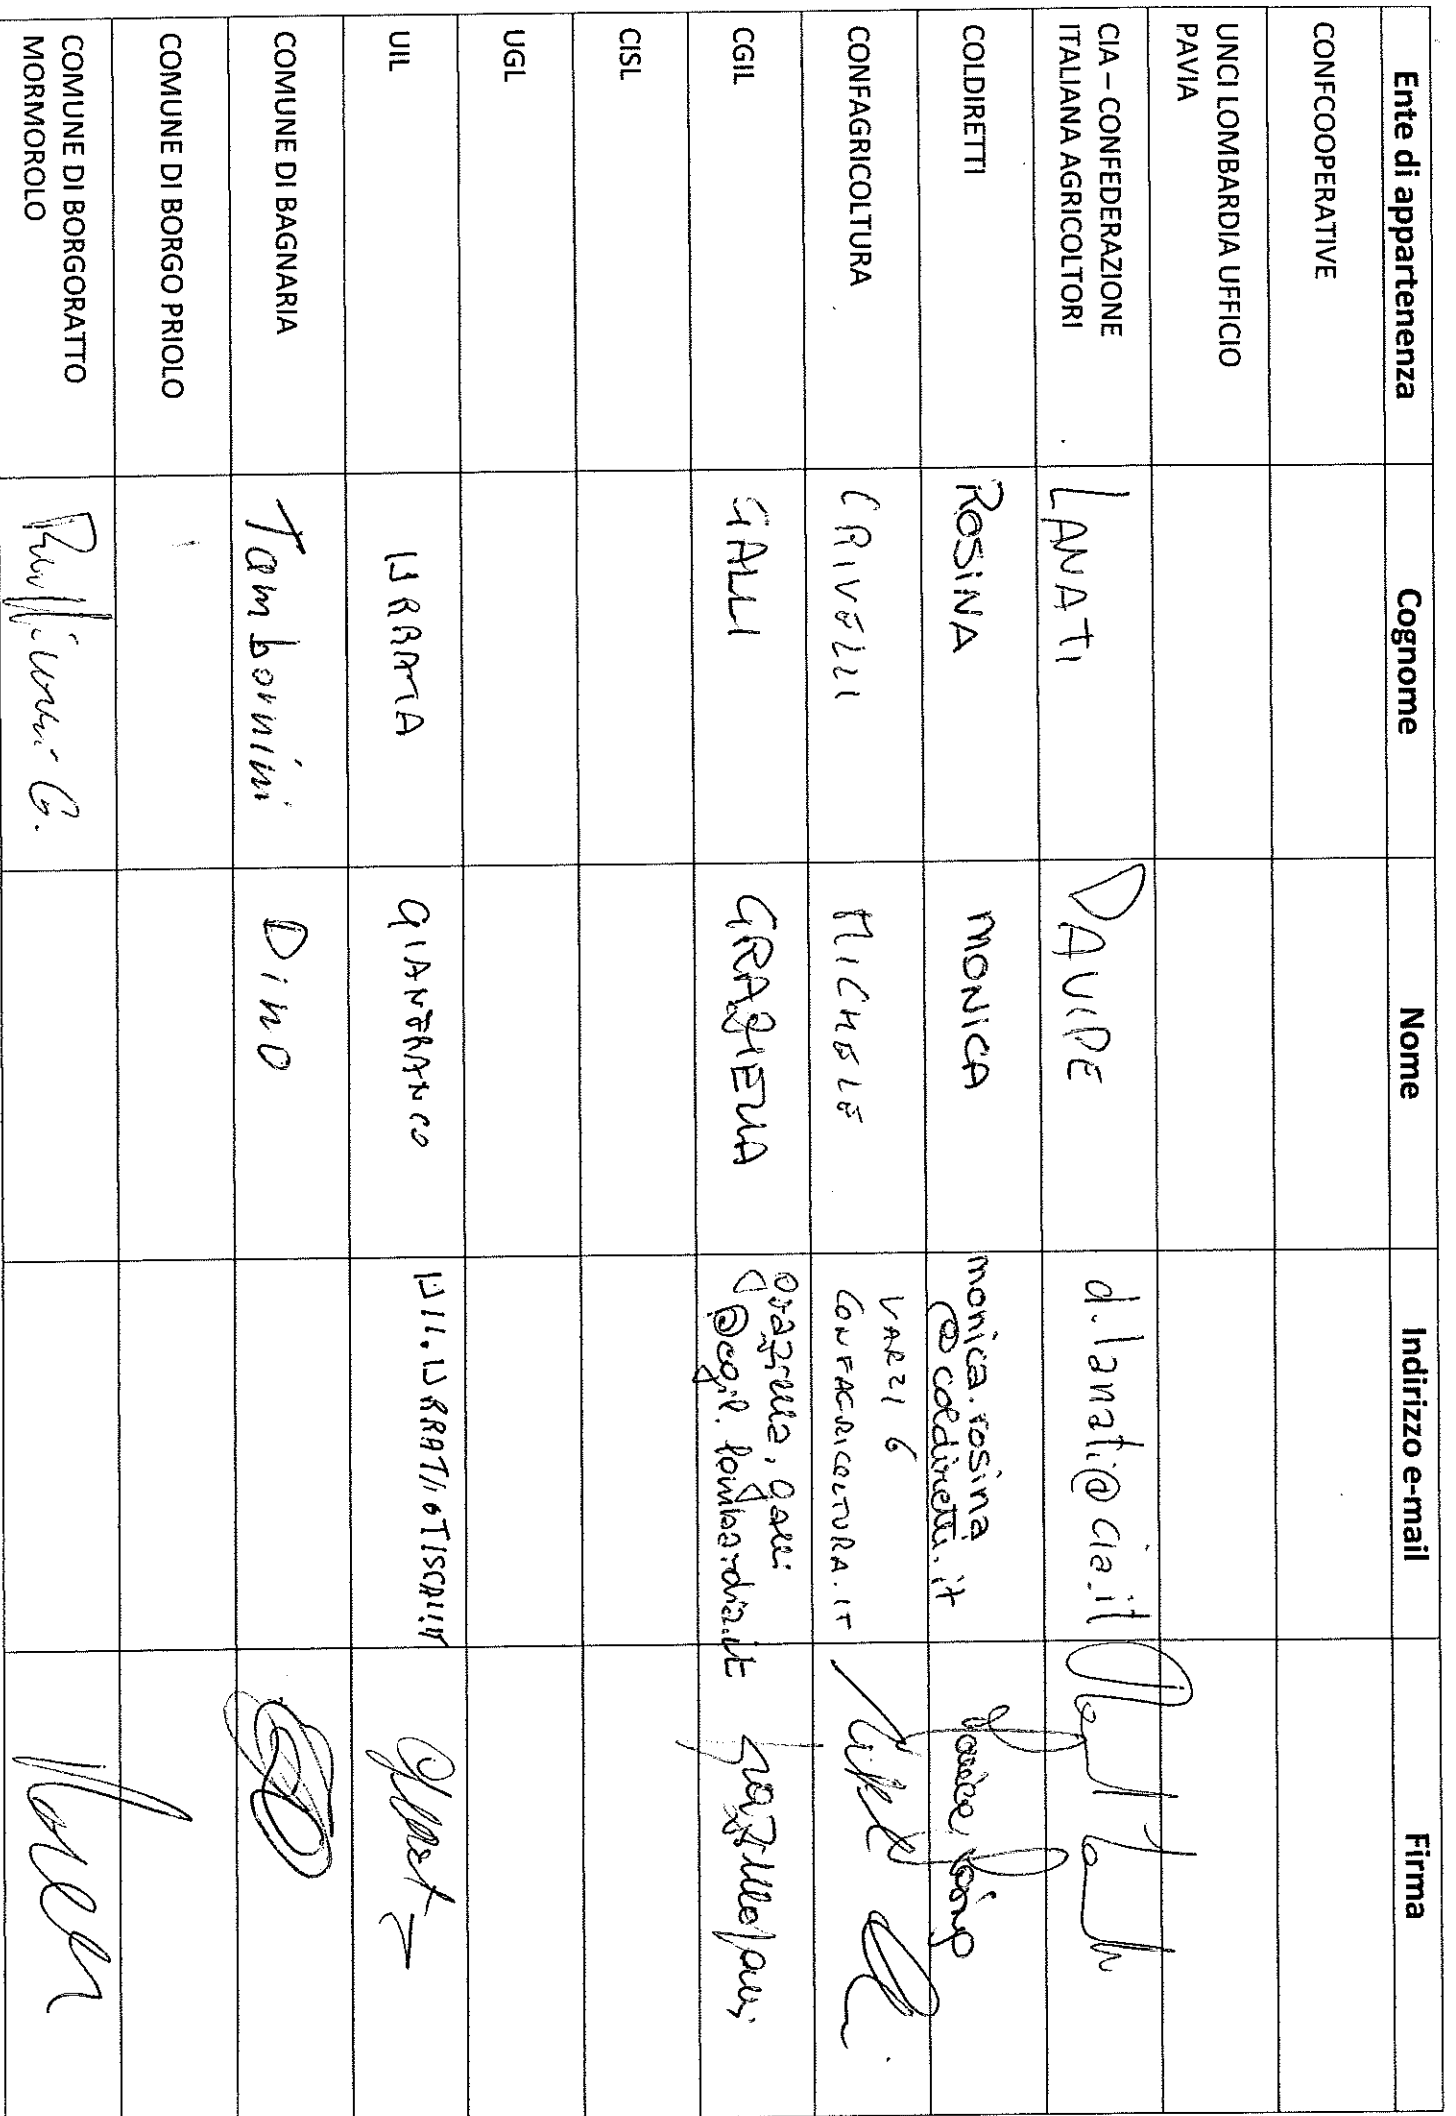 Ente di appartenenza Cognome Nome Indirizzo e-mail Firma
CONFCOOPERATIVE
UNCI LOMBARDIA UFFICIO
PAVIA
CIA – CONFEDERAZIONE
ITALIANA AGRICOLTORI LANATI DAVIDE d.lanati@cia.it
COLDIRETTI ROSINA MONICA monica.rosina
@coldiretti.it Monica Rosina
CONFAGRICOLTURA CRIVELLI MICHELE VARZI 6
CONFAGRICOLTURA.IT
CGIL GALLI GRAZIELLA graziella.galli
@cgil.lombardia.it Graziella Galli
CISL
UGL
UIL URRATA GIANFRANCO
COMUNE DI BAGNARIA Tambornini Dino
COMUNE DI BORGO PRIOLO
COMUNE DI BORGORATTO
MORMOROLO G.